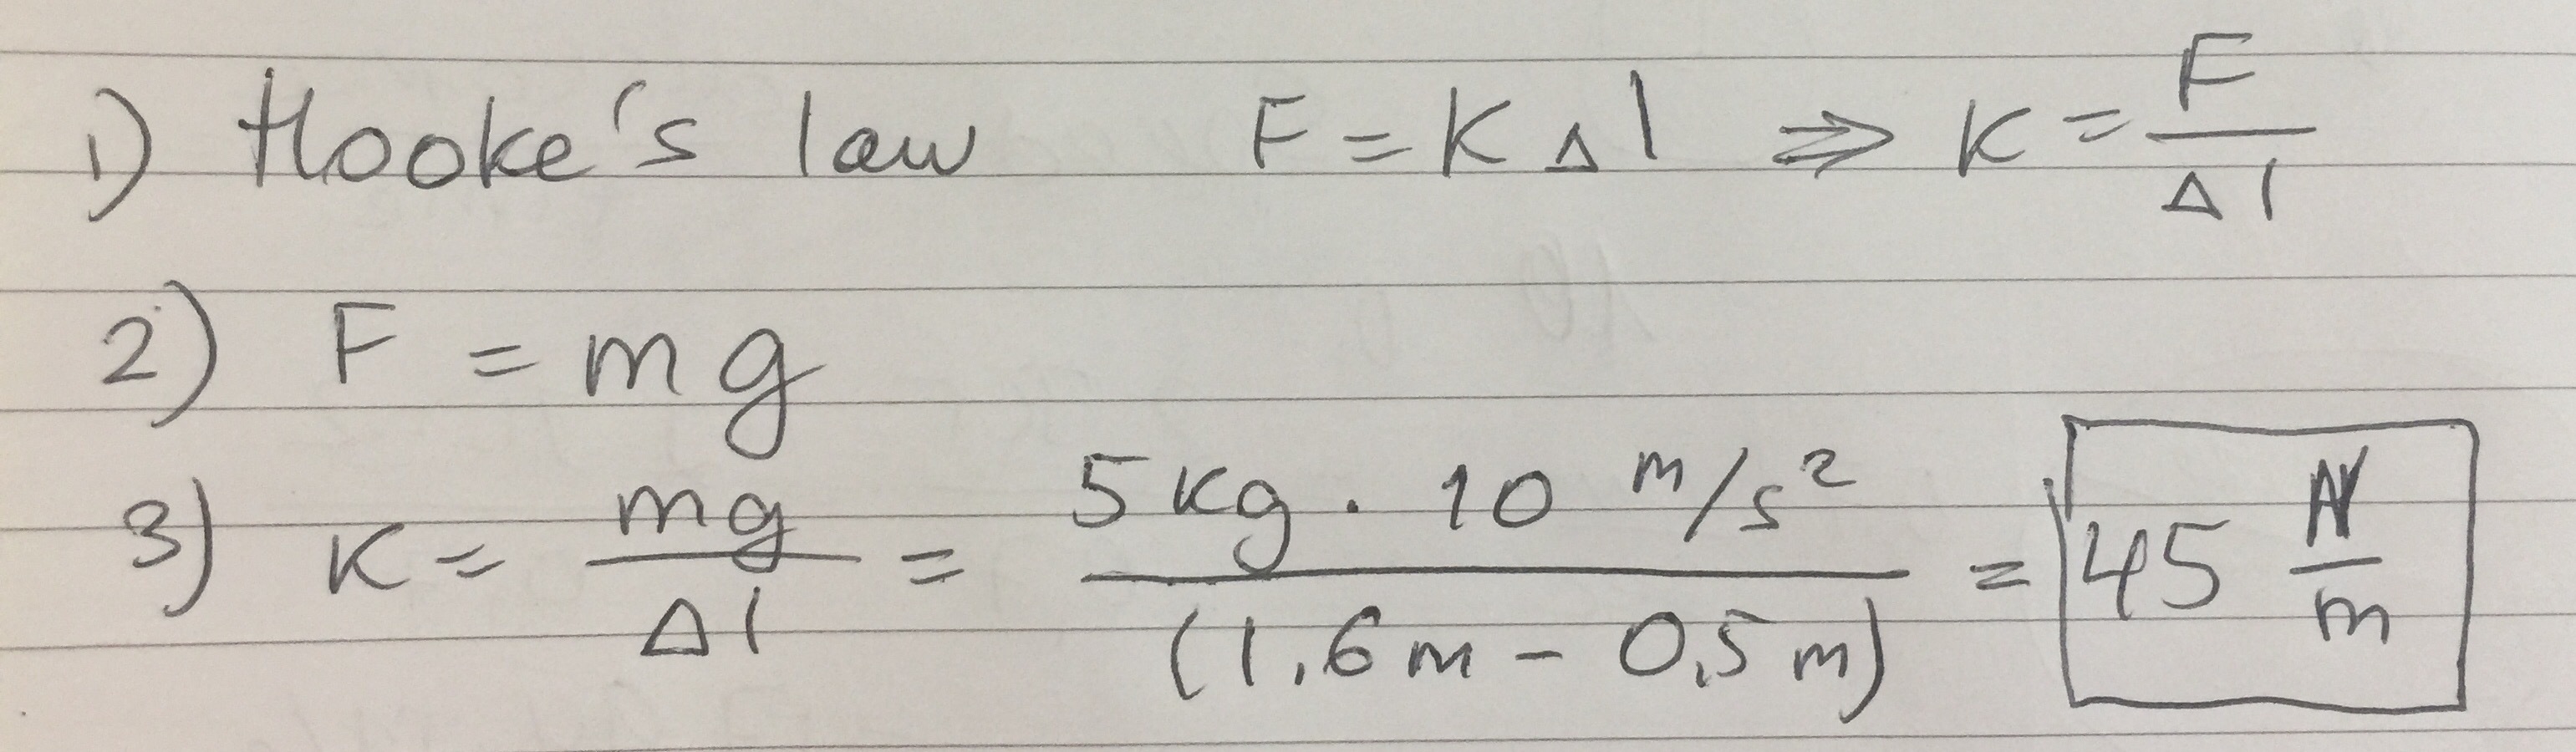 1) Hooke's law F = K Δl ⇒ K = F/Δl
2) F = mg
3) K = mg/Δl = 5 kg · 10 m/s² / (1,6 m - 0,5 m) = 45 N/m